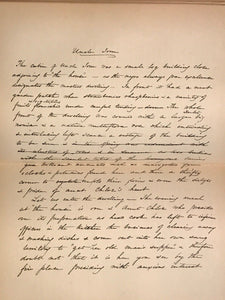 Uncle Tom
The cabin of Uncle Tom was a small log building close
adjoining to the house — as the negro always par excellence
designates the masters dwelling. In front it had a neat
garden patch where strawberries raspberries & a variety of
fruits flourished under careful tending — The whole
front of the dwelling was covered with a large
and a native multiflora rose which entwisting
& interlacing left scarce a vestige of the building
to be seen
&
petunias four-o'clocks
found
corner to
& pride of aunt Chloe's heart
Let us enter the dwelling — The evening meal
at the house is over & Aunt Chloe who presided
over its preparation as head cook has left to inferior
officers in the kitchen the business of clearing away
& washing dishes & come out into her own snug
territories to "get her old man's supper" & therefore
doubt not that it is her you see by the
fire place presiding with anxious interest